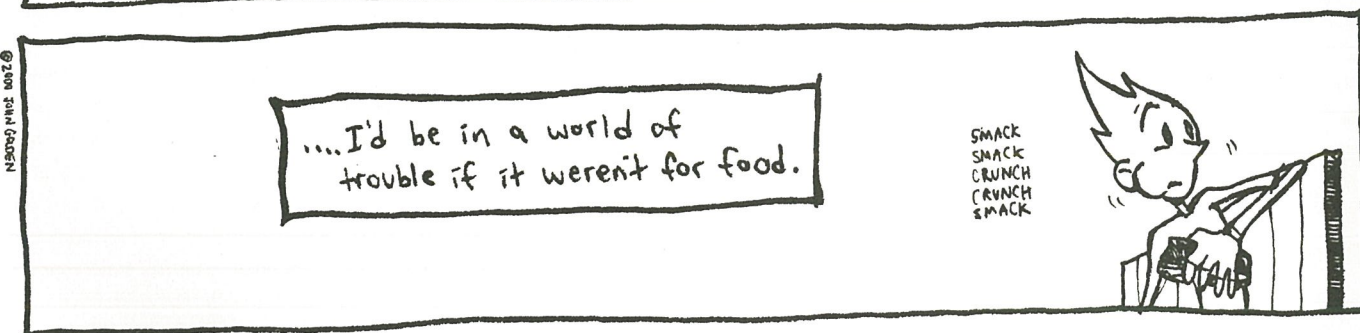 ....I'd be in a world of
trouble if it weren't for food.
SMACK
SMACK
CRUNCH
CRUNCH
SMACK